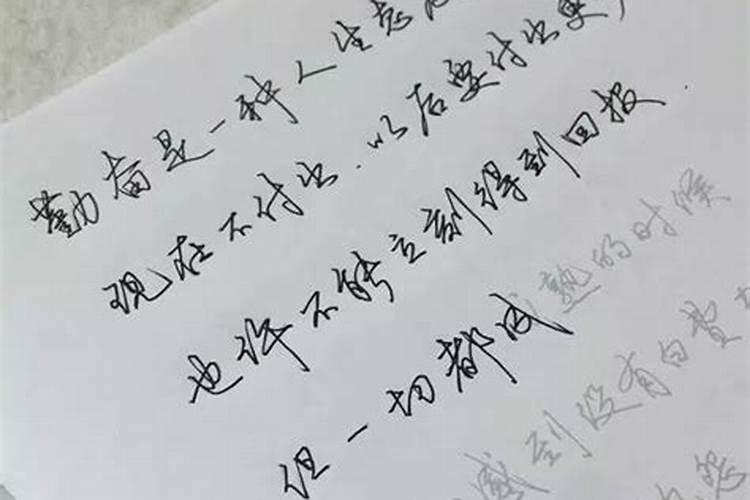 勤奋是一种人生态
现在不付出.以后要付出更
也许不能立刻得到回报.
但一切都成熟的时候
感到没有白费